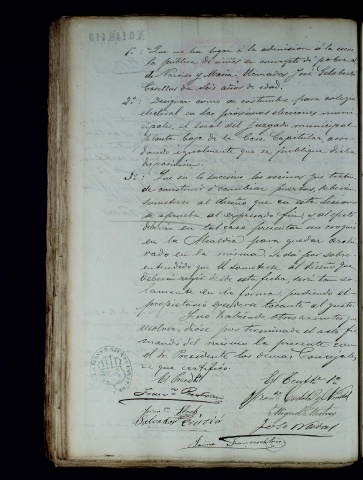 1º: Que no ha lugar á la admision á la escue
la pública de niños en concepto de pobre
de Narciso y Maria José
Casellas de seis años de edad.
2º: Designar como de costumbre para colegio
electoral en las próximas elecciones muni
cipales, el local del Juzgado municipal
planta baja de la Casa Capitular, acor
dando igualmente que se publique dicha
disposicion.
3º: Que en lo sucesivo los vecinos que traten
de construir ó cambiar puertas, deberán
someterse al diseño que en esta sesion
se aprueba al expresado fin, y al efecto
deberán en tal caso presentar un croquis
en la Alcaldía para quedar archi
vado en la misma. Se da por sobre
entendido que el someterse al diseño que
deberá regir desde esta fecha, será tan so
lamente en la forma, pudiendo el
propietario tocante al gusto.
Y no habiendo otros asuntos que
resolver, dióse por terminado el acto fir
mando del mismo la presente con
el Sr. Presidente los demas Concejales
de que certifico.
El Presidte
El Tente 1º
Salvador
Miguel
José
Jaime